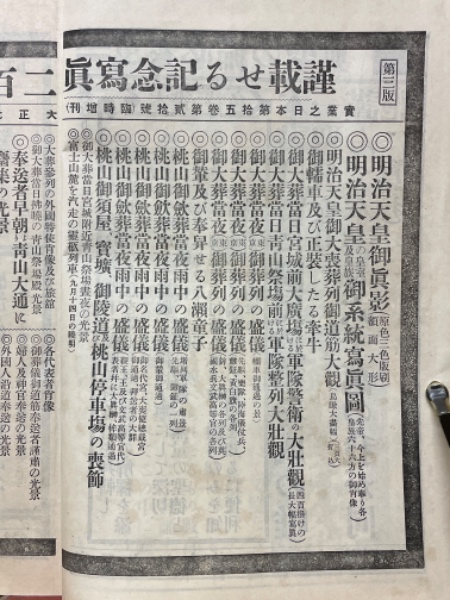 第三版
謹載せる記念寫眞
實業之日本第拾五卷第貳拾號(臨時增刊)
◎明治天皇御眞影(原色三色版刷額面大形)
◎明治天皇の皇室及皇族御系統寫眞圖
◎明治天皇御大喪葬列御道筋大觀
◎御轜車及び正裝したる牽牛
◎御大葬當日宮城前大廣場に於ける軍隊警衛の大壯觀(四百掛けの長大幅寫眞)
◎御大葬當日青山祭場前に於ける軍隊整列大壯觀
◎御大葬當夜(東京)御葬列の盛儀
◎御大葬當夜(東京)御葬列の盛儀
◎御大葬當夜(東京)御葬列の盛儀
◎御輦及び奉舁せる八瀬童子
◎桃山御斂葬當夜雨中の盛儀
◎桃山御斂葬當夜雨中の盛儀
◎桃山御斂葬當夜雨中の盛儀
◎桃山御斂葬當夜雨中の盛儀
◎桃山御須屋、寳壙、御陵道及び桃山停車場の喪飾
◎御大葬當日宮城附近青山祭場晝夜の光景
◎富士山麓を汽走の靈柩列車(九月十四日の鹵簿)
二百
大正元
◎大葬參列の外國特使肖像及び旅館
◎御大葬當日拂曉の青山祭場殿光景
◎奉送者早朝青山大通に
の光景
◎各代表者肖像
◎御葬儀御道筋奉送者謹肅の光景
◎婦人及神官奉送の光景
◎外國人沿道奉送の光景